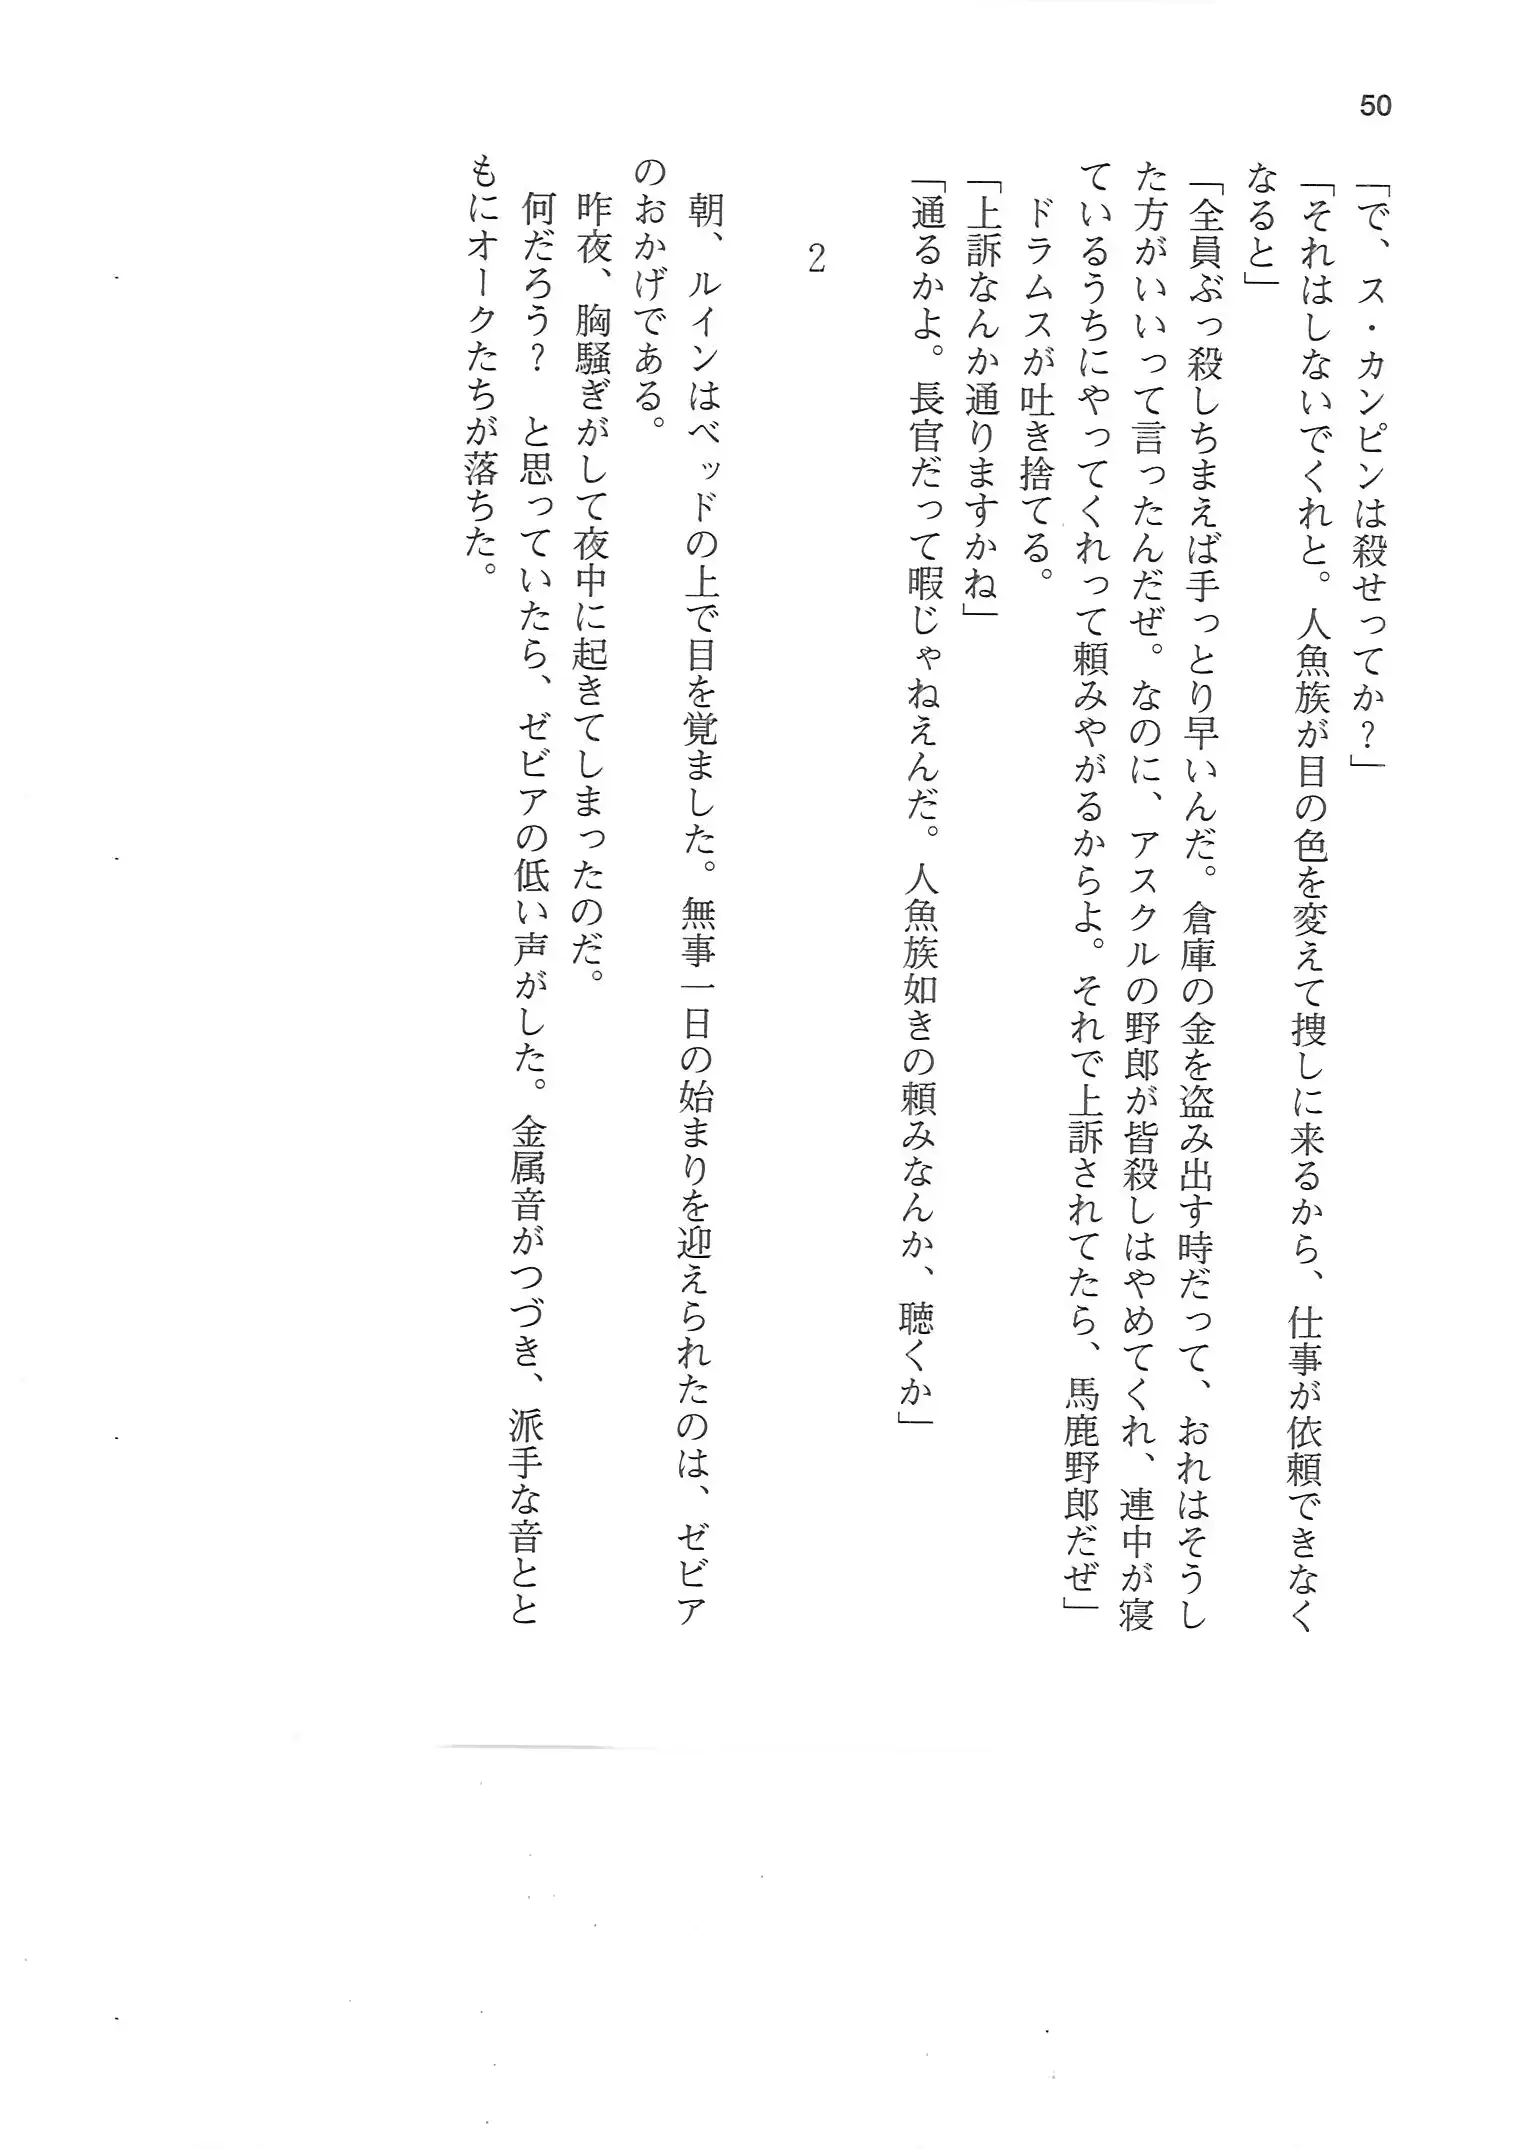 50
「で、ス・カンピンは殺せってか？」
「それはしないでくれと。人魚族が目の色を変えて捜しに来るから、仕事が依頼できなく
なると」
「全員ぶっ殺しちまえば手っとり早いんだ。倉庫の金を盗み出す時だって、おれはそうし
た方がいいって言ったんだぜ。なのに、アスクルの野郎が皆殺しはやめてくれ、連中が寝
ているうちにやってくれって頼みやがるからよ。それで上訴されてたら、馬鹿野郎だぜ」
　ドラムスが吐き捨てる。
「上訴なんか通りますかね」
「通るかよ。長官だって暇じゃねえんだ。人魚族如きの頼みなんか、聴くか」
2
　朝、ルインはベッドの上で目を覚ました。無事一日の始まりを迎えられたのは、ゼビア
のおかげである。
　昨夜、胸騒ぎがして夜中に起きてしまったのだ。
　何だろう？　と思っていたら、ゼビアの低い声がした。金属音がつづき、派手な音とと
もにオークたちが落ちた。